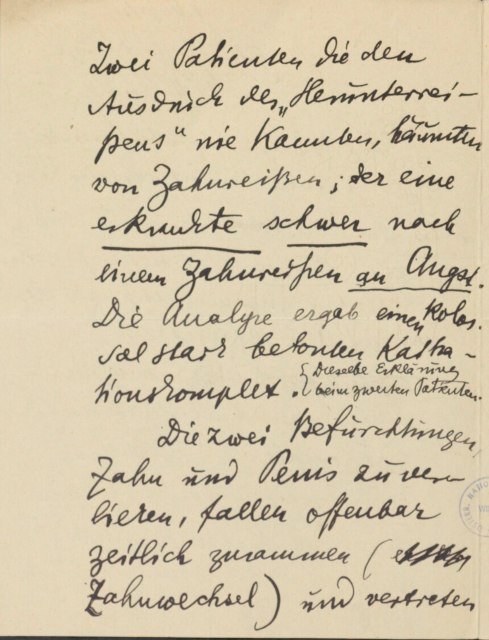 Zwei Patienten die den
Ausdruck des „Herunterrei-
ßens“ nie Kannten, träumten
von Zahnreißen; der eine
erkrankte schwer nach
einem Zahnreißen an Angst.
Die Analyse ergab einen kolos-
sal stark betonten Kastra-
tionskomplex. {Dieselbe Erklärung
beim zweiten Patienten.
Die zwei Befürchtungen,
Zahn und Penis zu ver-
lieren, fallen offenbar
zeitlich zusammen (
Zahnwechsel) und vertreten